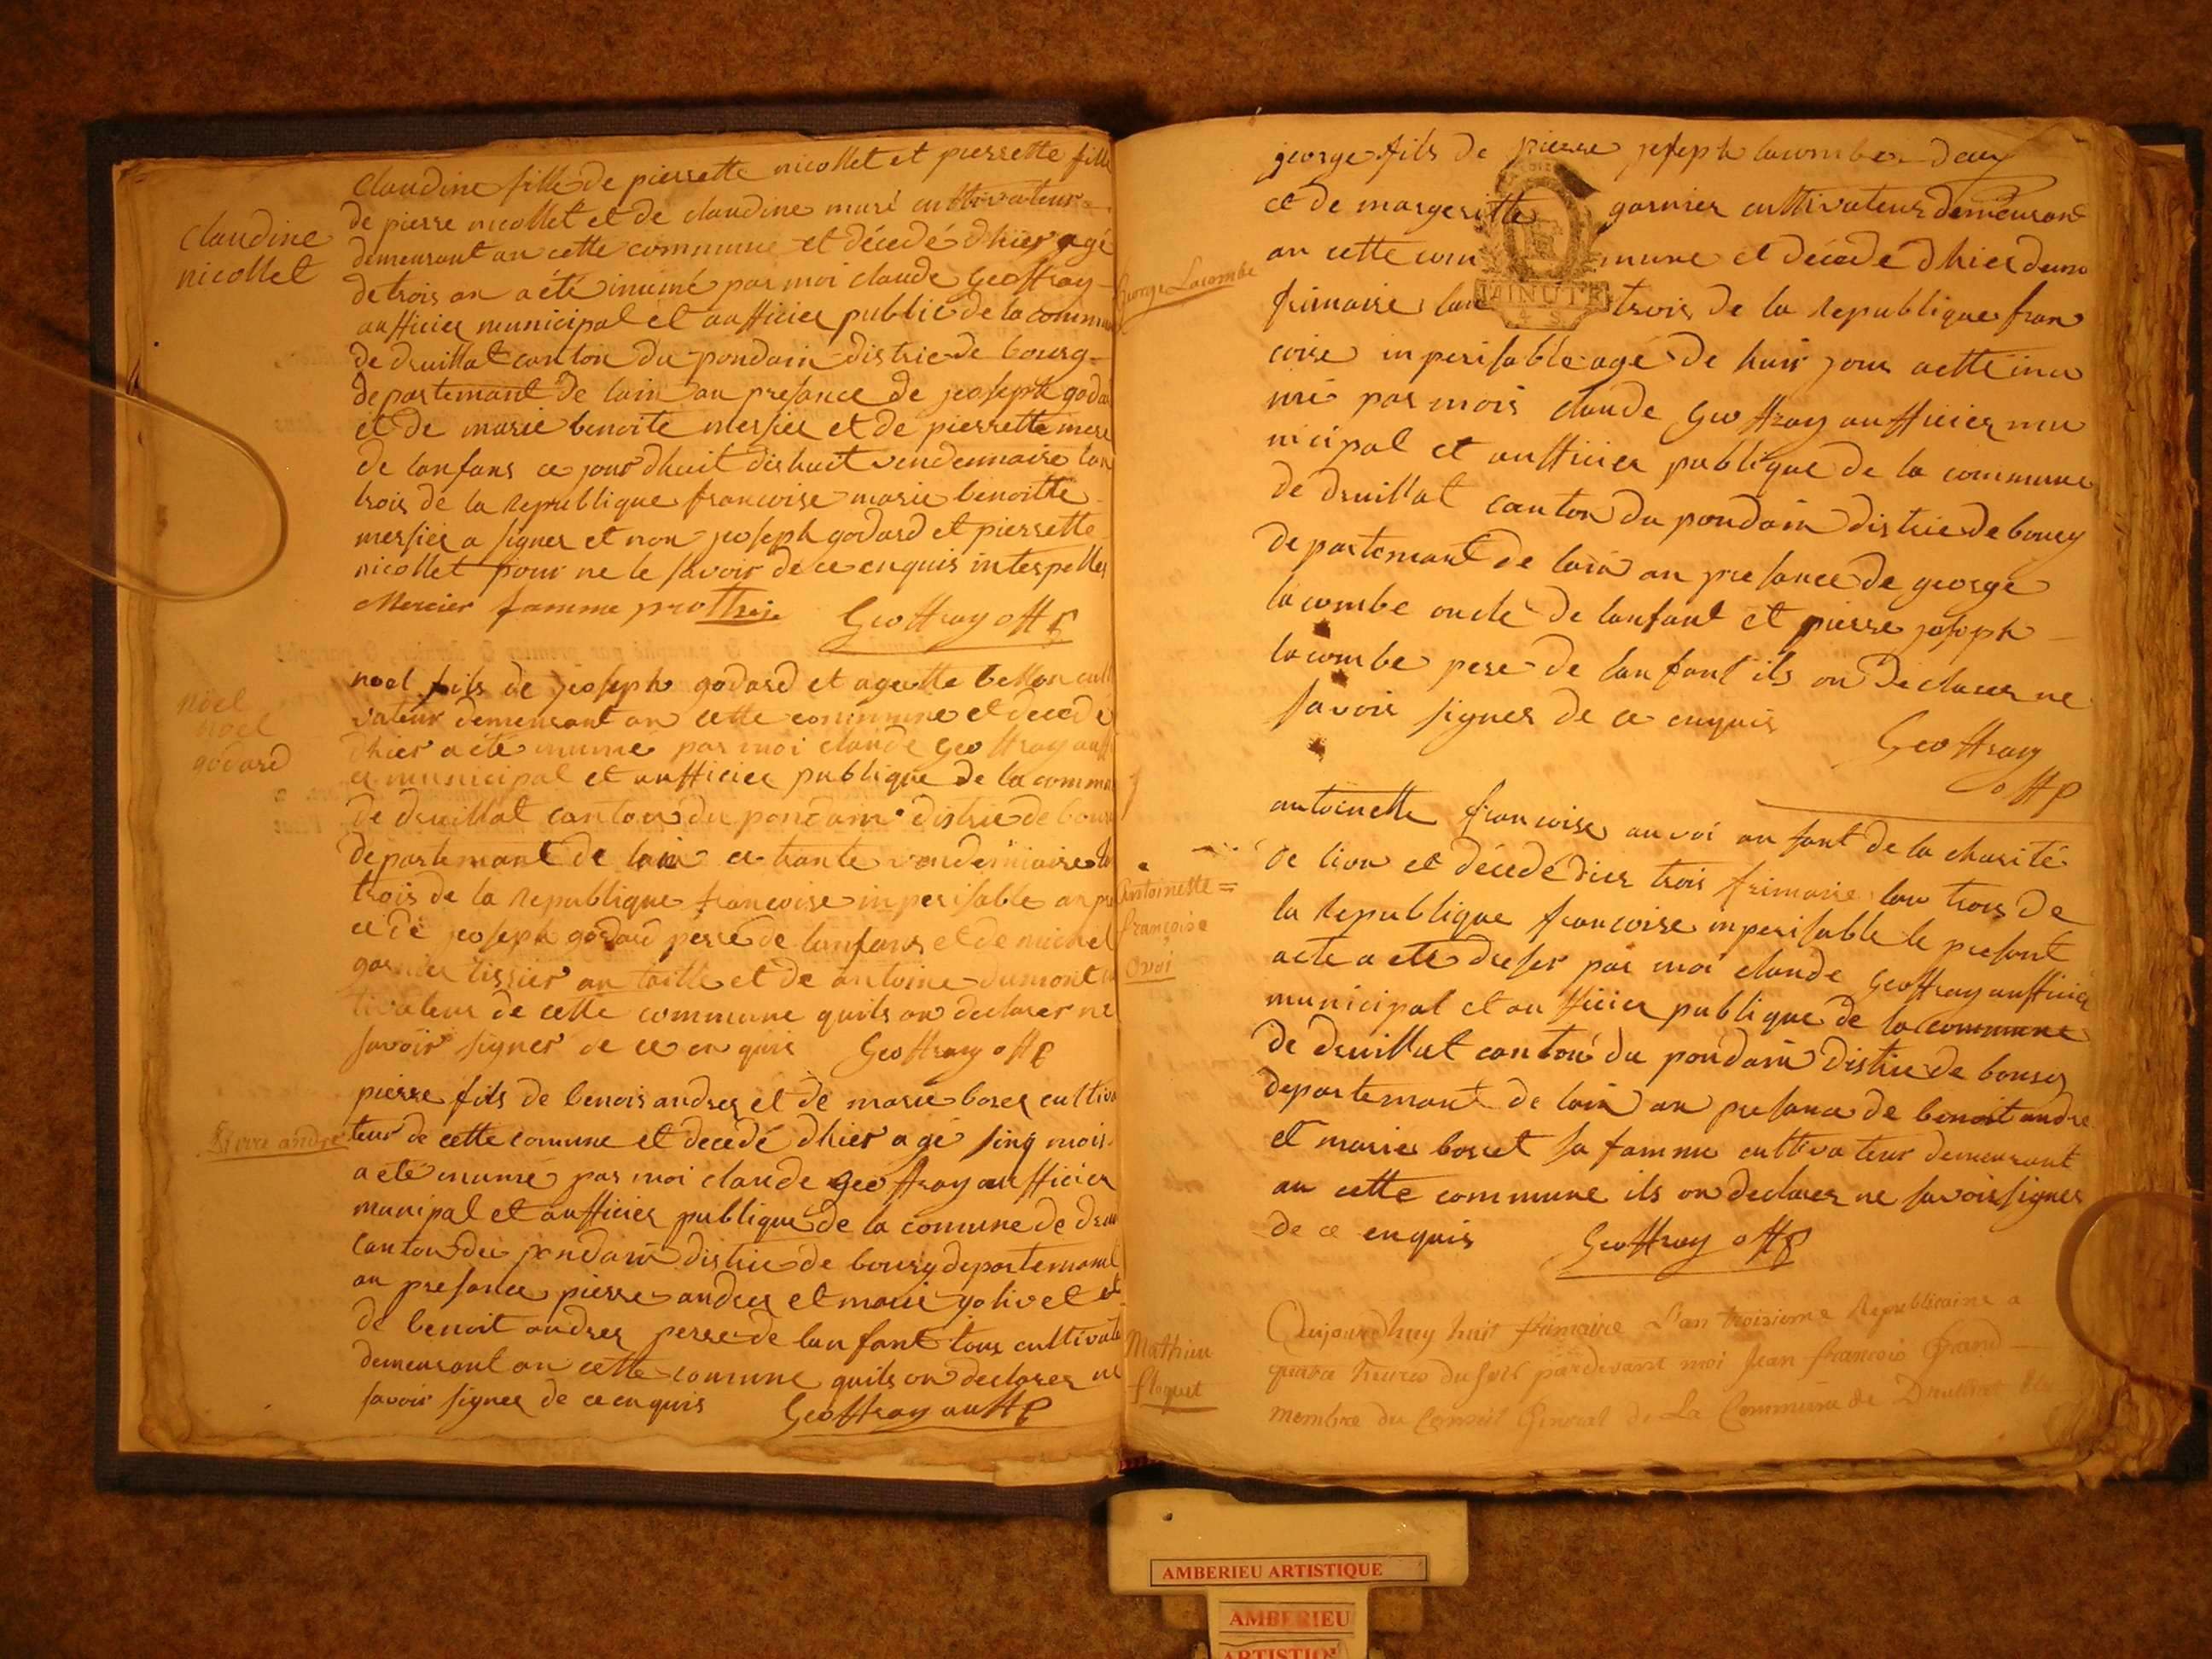 claudine fille de pierrette nicollet et pierrette fille
de pierre nicollet et de claudine muré cultivateur
claudine
nicollet
demeurant an cette commune et décedé dhier agé
de trois an a été inumé par moi claude Geoffray
aufficier municipal et aufficier public de la commu
de druillat canton du pondain distric de bourg
departemant de lain an presance de jeoseph godar
et de marie benoite mersier et de pierrette mere
de lanfans ce jour dhuit dishuit vendemaire lan
trois de la republique francoise marie benoitte
mersier a signer et non jeoseph godard et pierrette
nicollet pour ne le savoir de ce enquis interpeller
Mercier famme
Geoffray off p
noel fils de jeoseph godard et agatte bellon cult
noël
noel
godard
vateur demeurant an cette commune et decedé
dhier a été inumé par moi claude Geoffray auffi
er municipal et aufficier publique de la commu
de druillat canton du pondain distric de bour
departemant de lain ce trante vendemiaire la
trois de la republique francoise inperisable an pr
ce de jeoseph godard pere de lanfans et de michel
garnier tissier an toille et de antoine dumont
tivateur de cette commune quils on declarer ne
savoir signer de ce en quis Geoffray off p
pierre fils de benois andrer et de marie borer cultiva
Pierre andre
teur de cette comune et decedé dhier agé sinq mois
a été inumé par moi claude geoffray aufficier
munipal et aufficier publique de la comune de dru
canton du pondain distric de bourg departemant
an presance pierre andrer et marie golivet et
de benoit andrer perre de lanfant tous cultivate
demeurant an cette comune quils on declarer ne
savoir signer de ce enquis Geoffray auff p
george fils de pierre joseph lacombe
et de margeritte garnier cultivateur demeurant
George Lacombe
an cette com mune et décedé dhier
frimaire lan trois de la republique fran
coise inperisable agé de huit jour a etté inu
mé par mois claude Geoffray aufficier mu
nicipal et aufficier publique de la commune
de druillat canton du pondain distric de bourg
departemant de lain an presance de george
lacombe oncle de lanfant et pierre joseph
lacombe pere de lanfant ils on declarer ne
savoir signer de ce enquis
Geoffray
off p
MINUTE
antoinette francoise anvoi anfant de la charité
Antoinette =
françoise
ovoi
de lion et décedé dier trois frimaire lan trois de
la republique francoise inperisable le present
acte a eté dreser par moi claude Geoffray aufficier
municipal et aufficier publique de la commune
de druillat canton du pondain distric de bourg
departemant de lain an presance de benoit andre
et marie borret sa famme cultivateur demeurant
an cette commune ils on declarer ne savoir signer
de ce enquis Geoffray off p
Mathieu
floquet
Aujourdhuy huit frimaire L'an troisieme Republicaine a
quatre heures du soir pardevant moi jean françois Grand
membre du Conseil General de La Commune de Druillat
AMBERIEU ARTISTIQUE
AMBERIEU
ARTISTIQ